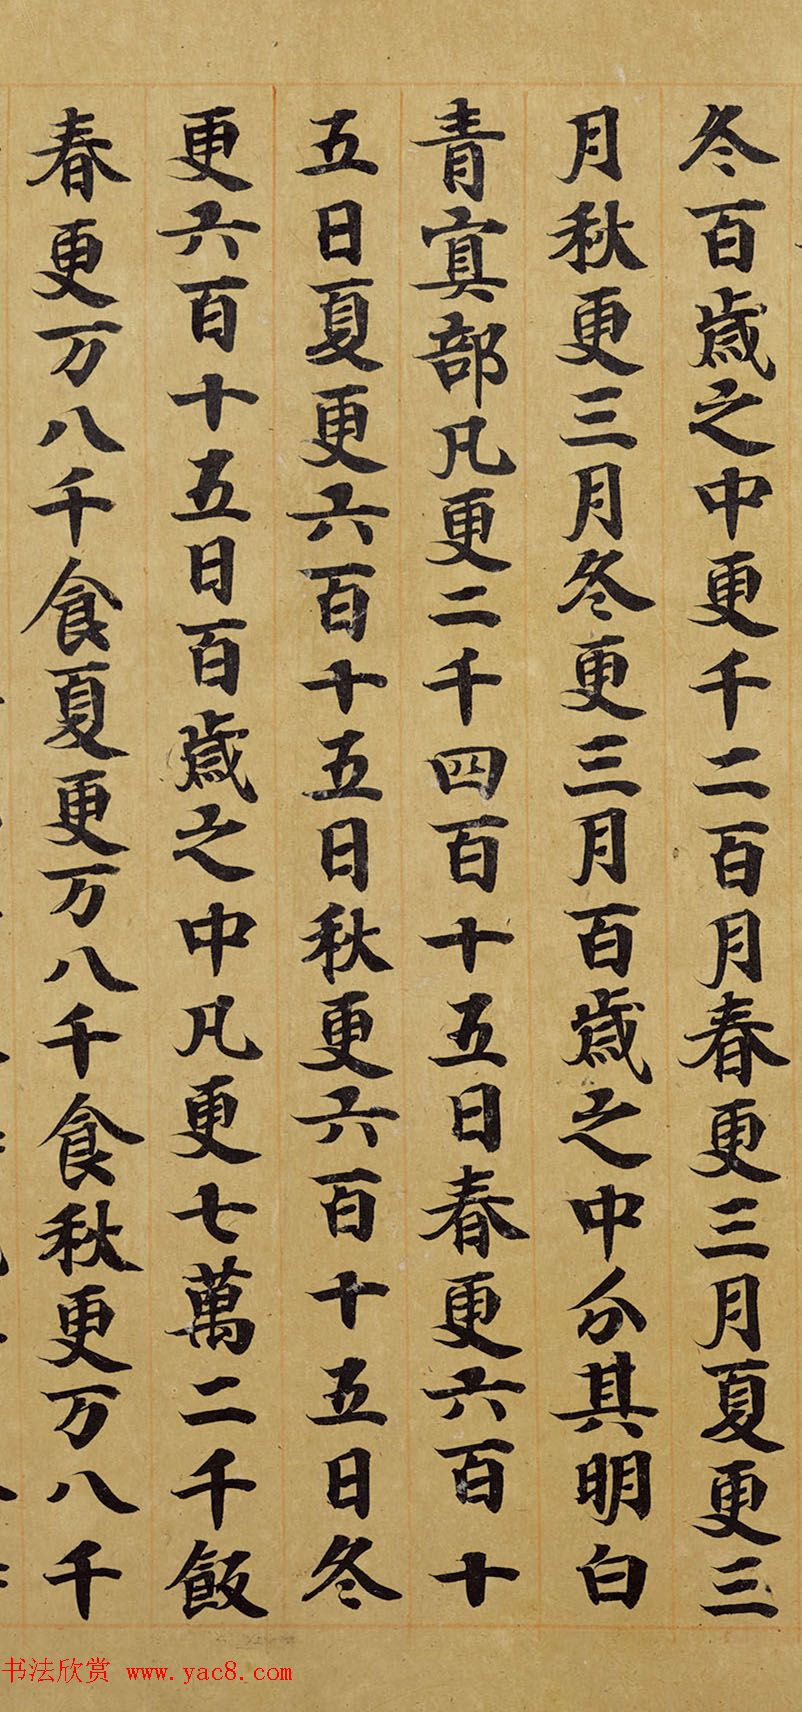 冬百歳之中更千二百月春更三月夏更三
月秋更三月冬更三月百歳之中分其明白
青寘部凡更二千四百十五日春更六百十
五日夏更六百十五日秋更六百十五日冬
更六百十五日百歳之中凡更七萬二千飯
春更万八千食夏更万八千食秋更万八千
书法欣赏 www.yac8.com